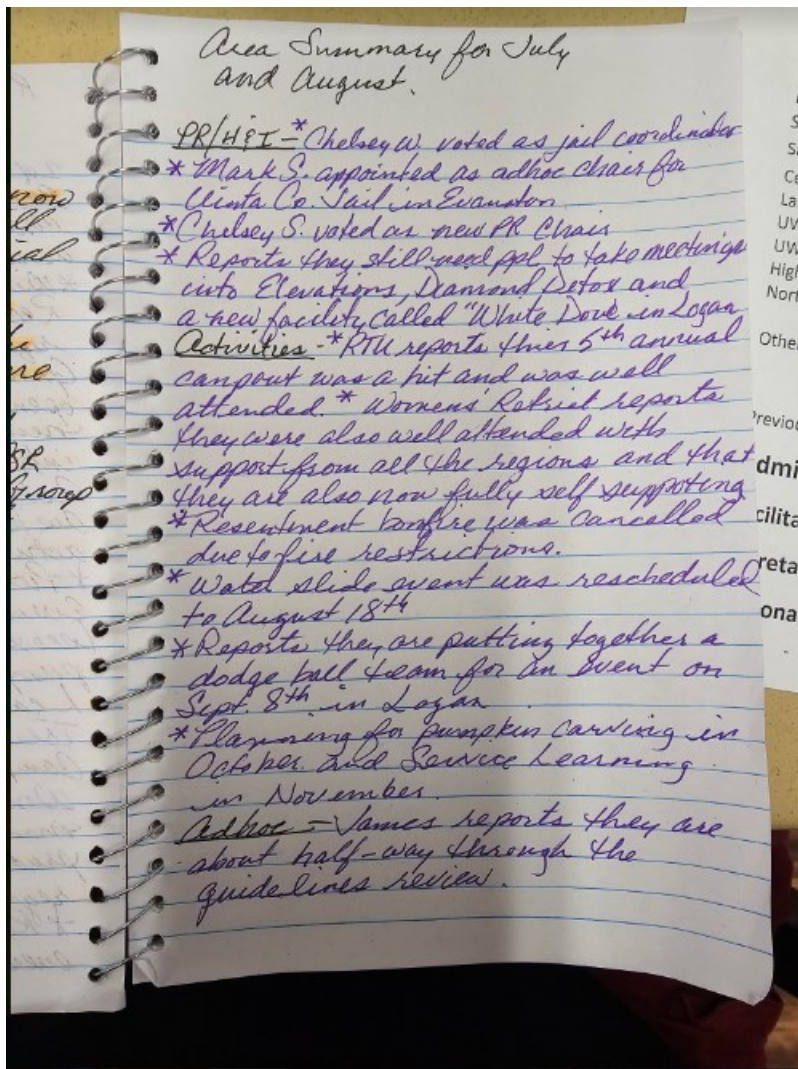 Area Summary for July
and August.
PR/H&I - * Chelsey W. voted as jail coordinator
* Mark S. appointed as adhoc chair for
Uinta Co. Jail in Evanston
* Chelsey S. voted as new PR Chair
* Reports they still need ppl to take meetings
into Elevations, Diamond Detox and
a new facility called "White Dove in Logan
Activities - * RTU reports thier 5th annual
campout was a hit and was well
attended. * Womens' Retriet reports
they were also well attended with
support from all the regions and that
they are also now fully self suppoting
* Resentment bonfire was cancelled
due to fire restrictions.
* Watd slide event was rescheduled
to August 18th
* Reports they are putting together a
dodge ball team for an event on
Sept. 8th in Logan
* Planning for pumpkin carving in
October and Service Learning
in November.
Adhoc - James reports they are
about half-way through the
guidelines review.
now
ial
re
High
Nort
Othe
Previou
dmi
cilita
reta
ona